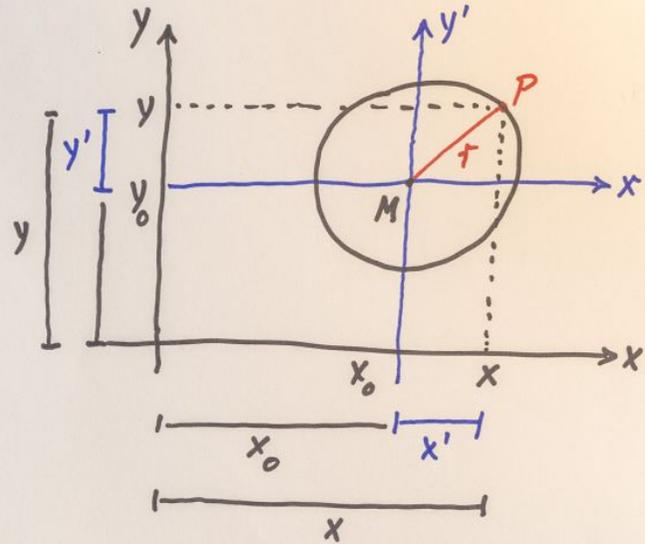 y
y'
y
P
y'
r
y₀
x
M
y
x₀
x
x
x₀
x'
x